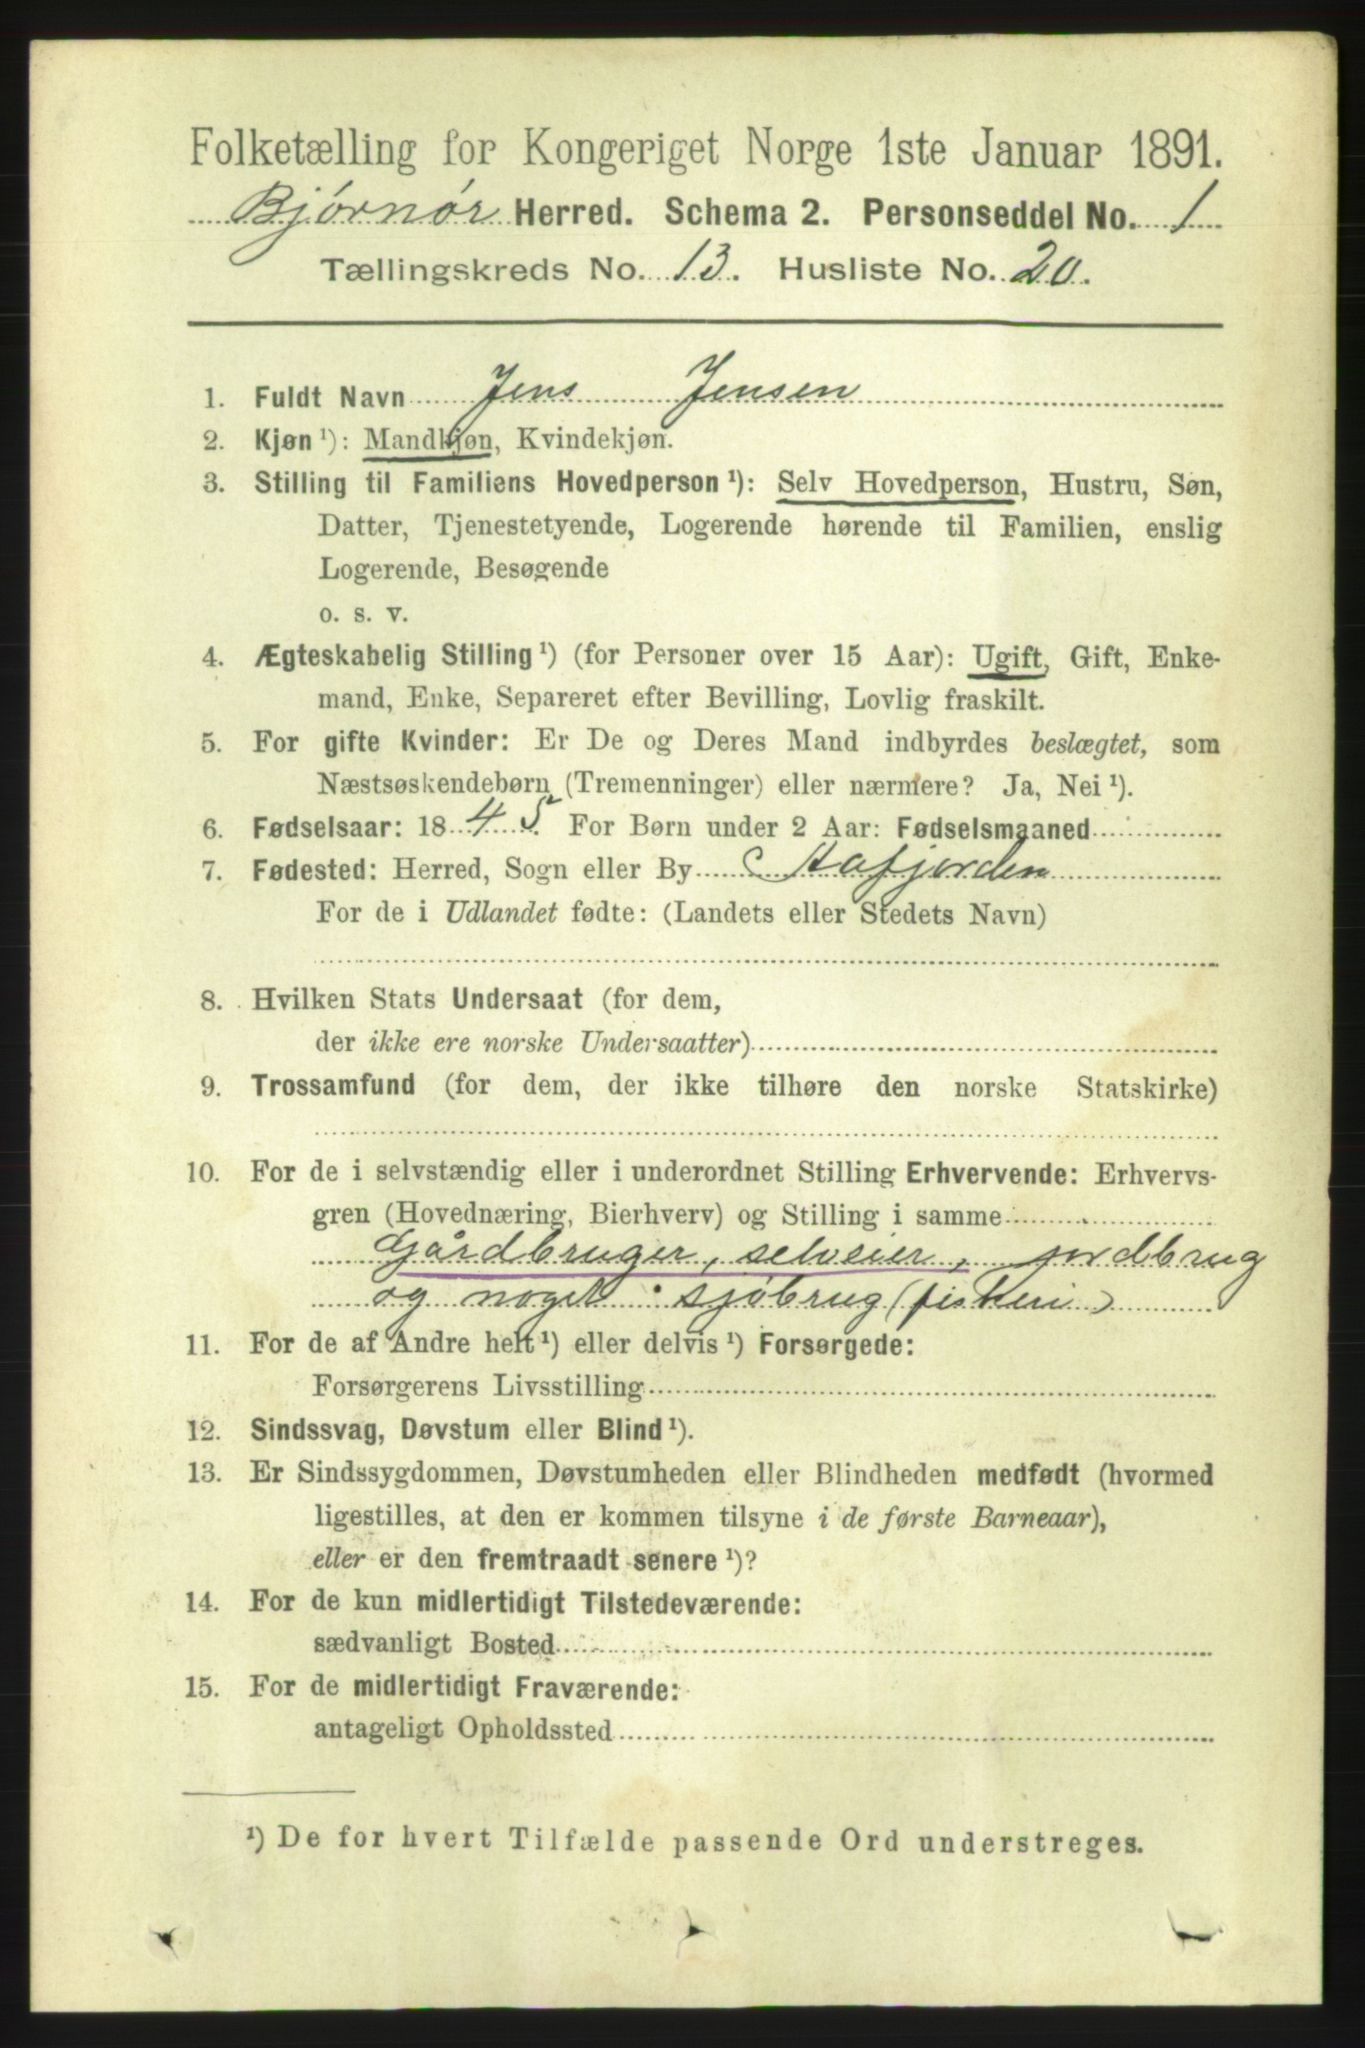 Folketælling for Kongeriget Norge 1ste Januar 1891.
Bjørnør Herred. Schema 2. Personseddel No. 1
Tællingskreds No. 13. Husliste No. 20.
1. Fuldt Navn Jens Jensen
2. Kjøn ¹): Mandkjøn, Kvindekjøn.
3. Stilling til Familiens Hovedperson ¹): Selv Hovedperson, Hustru, Søn,
Datter, Tjenestetyende, Logerende hørende til Familien, enslig
Logerende, Besøgende
o. s. v.
4. Ægteskabelig Stilling ¹) (for Personer over 15 Aar): Ugift, Gift, Enke-
mand, Enke, Separeret efter Bevilling, Lovlig fraskilt.
5. For gifte Kvinder: Er De og Deres Mand indbyrdes beslægtet, som
Næstsøskendebørn (Tremenninger) eller nærmere? Ja, Nei ¹).
6. Fødselsaar: 1845. For Børn under 2 Aar: Fødselsmaaned
7. Fødested: Herred, Sogn eller By Aafjorden
For de i Udlandet fødte: (Landets eller Stedets Navn)
8. Hvilken Stats Undersaat (for dem,
der ikke ere norske Undersaatter)
9. Trossamfund (for dem, der ikke tilhøre den norske Statskirke)
10. For de i selvstændig eller i underordnet Stilling Erhvervende: Erhvervs-
gren (Hovednæring, Bierhverv) og Stilling i samme
Gårdbruger, selveier, jordbrug
og noget sjöbrug (fiskeri)
11. For de af Andre helt ¹) eller delvis ¹) Forsørgede:
Forsørgerens Livsstilling
12. Sindssvag, Døvstum eller Blind ¹).
13. Er Sindssygdommen, Døvstumheden eller Blindheden medfødt (hvormed
ligestilles, at den er kommen tilsyne i de første Barneaar),
eller er den fremtraadt senere ¹)?
14. For de kun midlertidigt Tilstedeværende:
sædvanligt Bosted
15. For de midlertidigt Fraværende:
antageligt Opholdssted
¹) De for hvert Tilfælde passende Ord understreges.